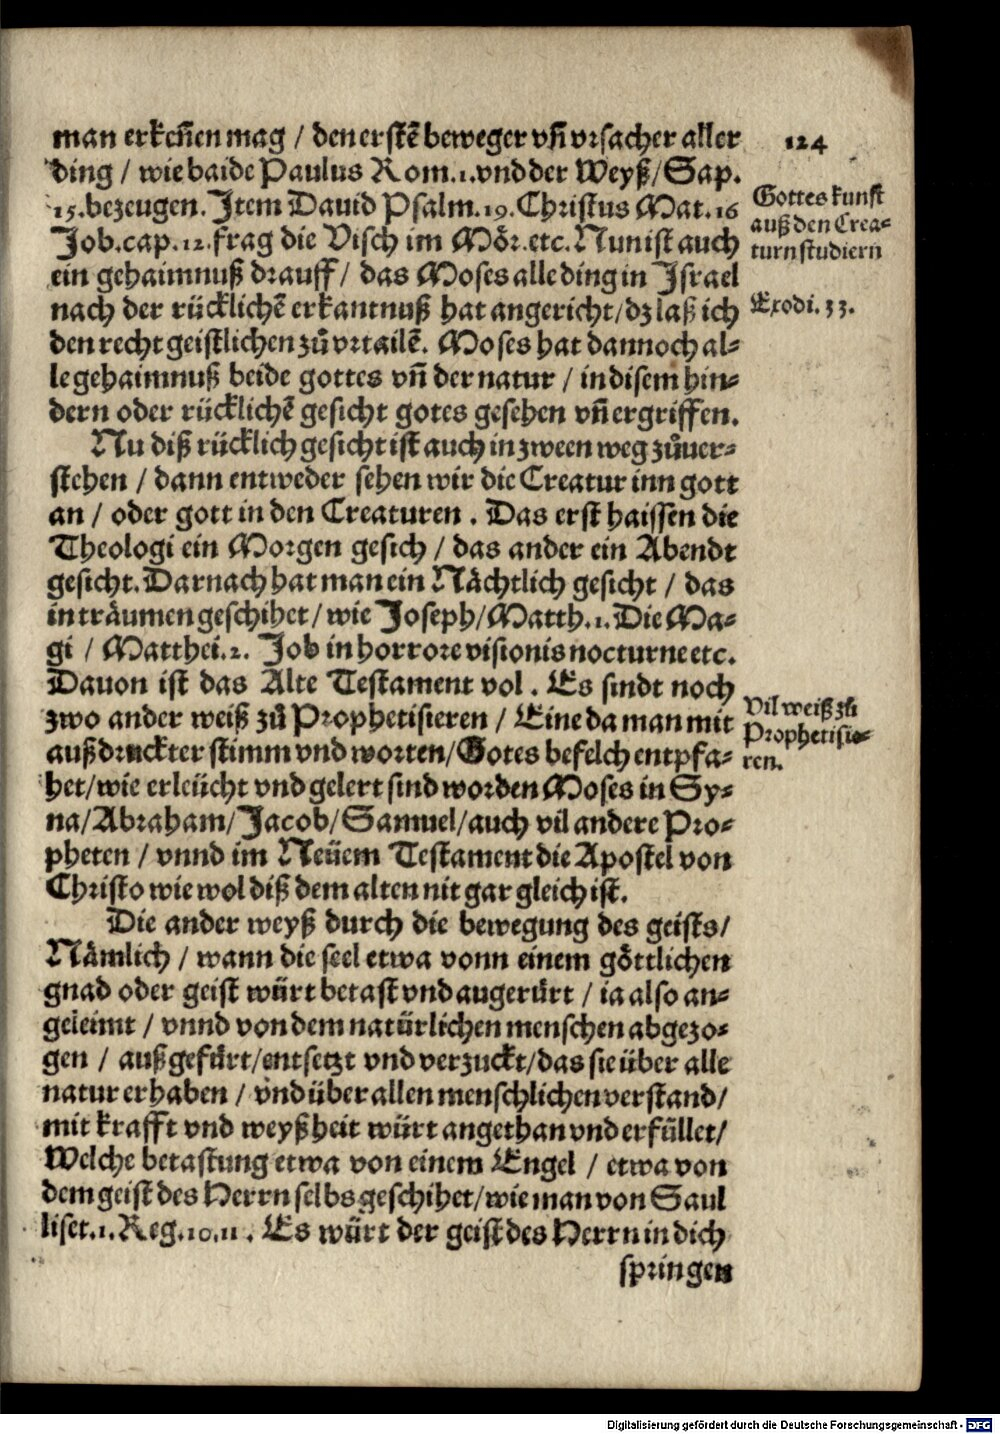 124
man erkeñen mag / den erstē beweger vñ vrsacher aller
ding / wie baide Paulus Rom.1.vnd der Weyß/Sap.
15.bezeugen. Item Dauid Psalm.19.Christus Mat.16
Job.cap.12.frag die Visch im Mör.etc. Nun ist auch
ein gehaimnuß drauff/ das Moses alle ding in Israel
nach der rücklichē erkantnuß hat angericht/dz laß ich
den recht geistlichen zů vrtailē. Moses hat dannoch al⸗
le gehaimnuß beide gottes vñ der natur / in disem hin⸗
dern oder rücklichē gesicht gotes gesehen vñ ergriffen.
Nu diß rücklich gesicht ist auch in zween weg zůuer⸗
stehen / dann entweder sehen wir die Creatur inn gott
an / oder gott in den Creaturen . Das erst haissen die
Theologi ein Morgen gesich / das ander ein Abendt
gesicht. Darnach hat man ein Nächtlich gesicht / das
in träumen geschihet/ wie Joseph/Matth.1.Die Ma⸗
gi / Matthei.2. Job in horrore visionis nocturne etc.
Dauon ist das Alte Testament vol . Es sindt noch
zwo ander weiß zů Prophetisieren / Eine da man mit
außdruckter stimm vnd worten/Gotes befelch entpfa⸗
het/wie erleücht vnd gelert sind worden Moses in Sy⸗
na/Abraham/Jacob/Samuel/auch vil andere Pro⸗
pheten / vnnd im Neüem Testament die Apostel von
Christo wie wol diß dem alten nit gar gleich ist.
Die ander weyß durch die bewegung des geists/
Nämlich / wann die seel etwa vonn einem göttlichen
gnad oder geist würt betast vnd augerürt / ia also an⸗
geleimt / vnnd von dem natürlichen menschen abgezo⸗
gen / außgefürt/entsetzt vnd verzuckt/das sie über alle
natur erhaben / vnd über allen menschlichen verstand/
mit krafft vnd weyßheit würt angethan vnd erfüllet/
Welche betastung etwa von einem Engel / etwa von
dem geist des Herrn selbs geschihet/wie man von Saul
liset.1.Reg.10.11 . Es würt der geist des Herrn in dich
springen
Gottes kunst
auß den Crea⸗
turn studiern
Exodi.33.
Vil weiß zů
Prophetisie⸗
ren.
Digitalisierung gefördert durch die Deutsche Forschungsgemeinschaft - DFG